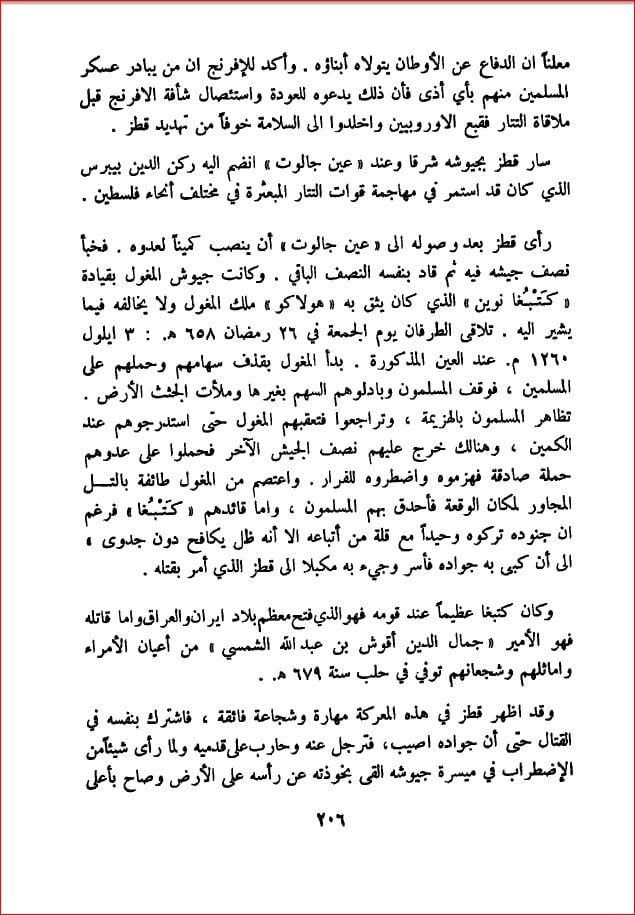 معلناً ان الدفاع عن الأوطان يتولاه أبناؤه . وأكد للإفرنج ان من يبادر عسكر
المسلمين منهم بأي أذى فأن ذلك يدعوه للعودة واستئصال شأفة الافرنج قبل
ملاقاة التتار فقبع الاوروبيين واخلدوا الى السلامة خوفاً من تهديد قطز .
سار قطز بجيوشه شرقا وعند « عين جالوت » انضم اليه ركن الدين بيبرس
الذي كان قد استمر في مهاجمة قوات التتار المبعثرة في مختلف أنحاء فلسطين .
رأى قطز بعد وصوله الى « عين جالوت » أن ينصب كميناً لعدوه . فخبأ
نصف جيشه فيه ثم قاد بنفسه النصف الباقي . وكانت جيوش المغول بقيادة
« كَتَبْغا نوين » الذي كان يثق به « هولاكو » ملك المغول ولا يخالفه فيما
يشير اليه . تلاقى الطرفان يوم الجمعة في ٢٦ رمضان ٦٥٨ هـ . : ٣ ايلول
١٢٦٠ م. عند العين المذكورة . بدأ المغول بقذف سهامهم وحملهم على
المسلمين ، فوقف المسلمون وبادلوهم السهم بغيرها وملأت الجثث الأرض .
تظاهر المسلمون بالهزيمة ، وتراجعوا فتعقبهم المغول حتى استدرجوهم عند
الكمين ، وهنالك خرج عليهم نصف الجيش الآخر فحملوا على عدوهم
حملة صادقة فهزموه واضطروه للفرار . واعتصم من المغول طائفة بالتــل
المجاور لمكان الوقعة فأحدق بهم المسلمون ، واما قائدهم « كَتَبْغا » فرغم
ان جنوده تركوه وحيداً مع قلة من أتباعه الا أنه ظل يكافح دون جدوى »
الى أن كبى به جواده فأسر وجيء به مكبلا الى قطز الذي أمر بقتله .
وكان كتبغا عظيماً عند قومه فهو الذي فتح معظم بلاد ايران والعراق واما قاتله
فهو الأمير « جمال الدين أقوش بن عبد الله الشمسي » من أعيان الأمراء
واماثلهم وشجعانهم توفي في حلب سنة ٦٧٩ هـ . .
وقد اظهر قطز في هذه المعركة مهارة وشجاعة فائقة ، فاشترك بنفسه في
القتال حتى أن جواده اصيب، فترجل عنه وحارب على قدميه ولما رأى شيئاً من
الإضطراب في ميسرة جيوشه القى بخوذته عن رأسه على الأرض وصاح بأعلى
٢٠٦